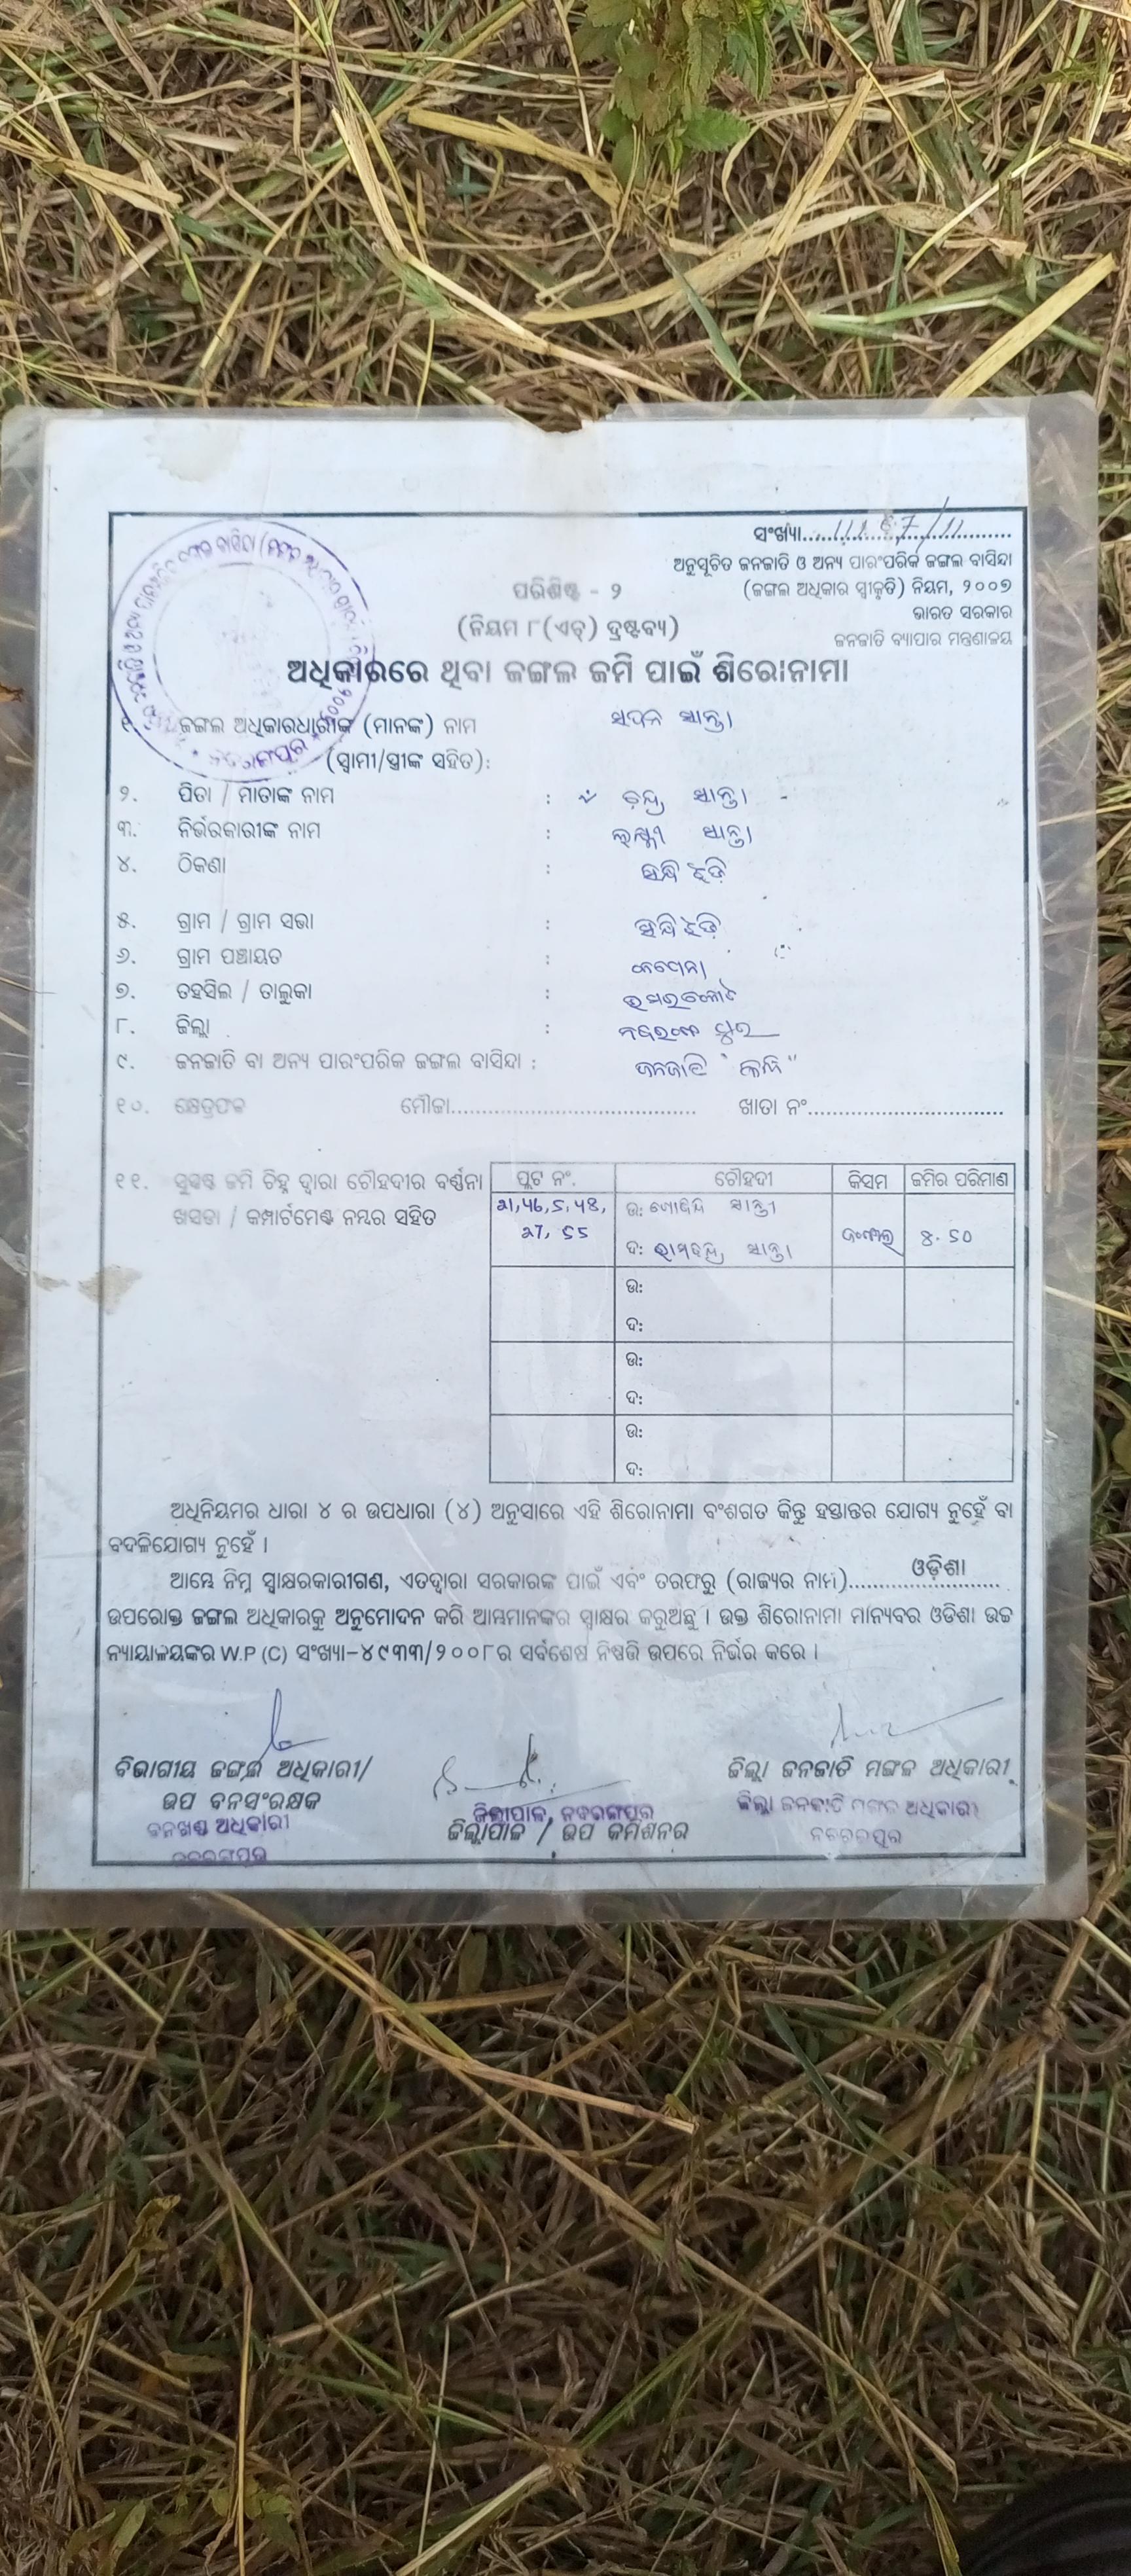 ସଂଖ୍ୟା....................
ଅନୁସୂଚିତ ଜନଜାତି ଓ ଅନ୍ୟ ପାରଂପରିକ ଜଙ୍ଗଲ ବାସିନ୍ଦା
(ଜଙ୍ଗଲ ଅଧିକାର ସ୍ୱୀକୃତି) ନିୟମ, ୨୦୦୭
ଭାରତ ସରକାର
ଜନଜାତି ବ୍ୟାପାର ମନ୍ତ୍ରଣାଳୟ
ପରିଶିଷ୍ଟ - ୨
(ନିୟମ ୮(ଏଚ୍) ଦ୍ରଷ୍ଟବ୍ୟ)
ଅଧିକାରରେ ଥିବା ଜଙ୍ଗଲ ଜମି ପାଇଁ ଶିରୋନାମା
ଜଙ୍ଗଲ ଅଧିକାରଧାରୀଙ୍କ (ମାନଙ୍କ) ନାମ ସପନ ସାନ୍ତା
(ସ୍ୱାମୀ/ସ୍ତ୍ରୀଙ୍କ ସହିତ):
୨. ପିତା / ମାତାଙ୍କ ନାମ : ଚନ୍ଦ୍ର ସାନ୍ତା
୩. ନିର୍ଭରକାରୀଙ୍କ ନାମ : ଲକ୍ଷ୍ମୀ ସାନ୍ତା
୪. ଠିକଣା :
୫. ଗ୍ରାମ / ଗ୍ରାମ ସଭା :
୬. ଗ୍ରାମ ପଞ୍ଚାୟତ :
୭. ତହସିଲ / ତାଲୁକା : ଉମରକୋଟ
୮. ଜିଲ୍ଲା : ନବରଙ୍ଗପୁର
୯. ଜନଜାତି ବା ଅନ୍ୟ ପାରଂପରିକ ଜଙ୍ଗଲ ବାସିନ୍ଦା : ଜନଜାତି
୧୦. କ୍ଷେତ୍ରଫଳ ମୌଜା.................... ଖାତା ନଂ....................
୧୧. ସୁସ୍ପଷ୍ଟ ଜମି ଚିହ୍ନ ଦ୍ୱାରା ଚୌହଦୀର ବର୍ଣ୍ଣନା
ଖସଡା / କମ୍ପାର୍ଟମେଣ୍ଟ ନମ୍ବର ସହିତ
ପ୍ଲଟ ନଂ. ଚୌହଦୀ କିସମ ଜମିର ପରିମାଣ
27, 55 ଉ: ଗୋବିନ୍ଦ ସାନ୍ତା
ଦ: ରାମଚନ୍ଦ୍ର ସାନ୍ତା ଜଙ୍ଗଲ 8.50
ଉ:
ଦ:
ଉ:
ଦ:
ଉ:
ଦ:
ଅଧିନିୟମର ଧାରା ୪ ର ଉପଧାରା (୪) ଅନୁସାରେ ଏହି ଶିରୋନାମା ବଂଶଗତ କିନ୍ତୁ ହସ୍ତାନ୍ତର ଯୋଗ୍ୟ ନୁହେଁ ବା
ବଦଳିଯୋଗ୍ୟ ନୁହେଁ ।
ଆମ୍ଭେ ନିମ୍ନ ସ୍ୱାକ୍ଷରକାରୀଗଣ, ଏତଦ୍ୱାରା ସରକାରଙ୍କ ପାଇଁ ଏବଂ ତରଫରୁ (ରାଜ୍ୟର ନାମ)........ଓଡ଼ିଶା........
ଉପରୋକ୍ତ ଜଙ୍ଗଲ ଅଧିକାରକୁ ଅନୁମୋଦନ କରି ଆମ୍ଭମାନଙ୍କର ସ୍ୱାକ୍ଷର କରୁଅଛୁ । ଉକ୍ତ ଶିରୋନାମା ମାନ୍ୟବର ଓଡିଶା ଉଚ୍ଚ
ନ୍ୟାୟାଳୟଙ୍କର W.P (C) ସଂଖ୍ୟା-୪୯୩୩/୨୦୦୮ର ସର୍ବଶେଷ ନିଷ୍ପତ୍ତି ଉପରେ ନିର୍ଭର କରେ ।
ବିଭାଗୀୟ ଜଙ୍ଗଲ ଅଧିକାରୀ/
ଉପ ବନସଂରକ୍ଷକ
ବନଖଣ୍ଡ ଅଧିକାରୀ
ନବରଙ୍ଗପୁର
ଜିଲ୍ଲାପାଳ, ନବରଙ୍ଗପୁର
ଜିଲ୍ଲାପାଳ / ଉପ କମିଶନର
ଜିଲ୍ଲା ଜନଜାତି ମଙ୍ଗଳ ଅଧିକାରୀ
ଜିଲ୍ଲା ଜନଜାତି ମଙ୍ଗଳ ଅଧିକାରୀ
ନବରଙ୍ଗପୁର